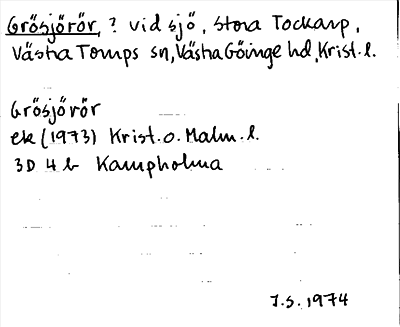 Grösjörör, ? vid sjö, Stora Tockarp,
Västra Torups sn, Västra Göinge hd, Krist. l.
Grösjörör
ek (1973) Krist. o. Malm. l.
3D 4 b Kampholma
J.S. 1974